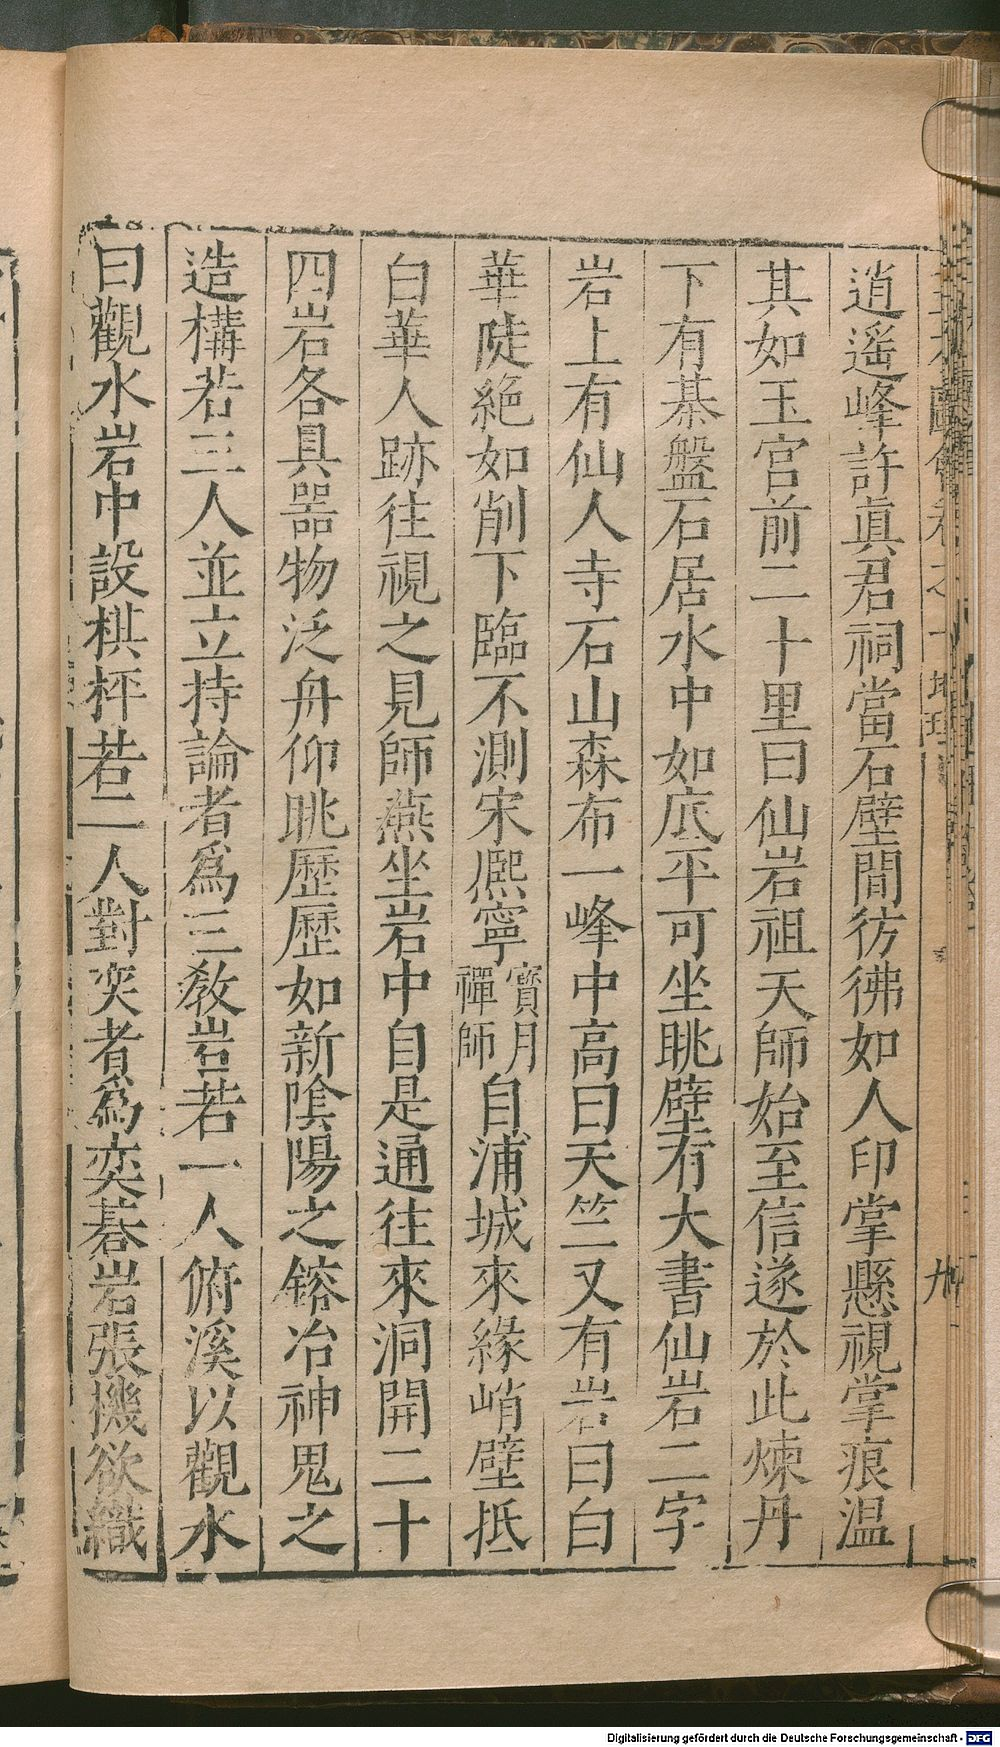 逍遙峰許眞君祠當石壁間彷彿如人印掌懸視掌痕温
其如玉宮前二十里曰仙岩祖天師始至信遂於此煉丹
下有棊盤石居水中如底平可坐眺壁有大書仙岩二字
岩上有仙人寺石山森布一峰中高曰天竺又有岩曰白
華陡絶如削下臨不測宋熈寧寳月禪師自浦城來緣峭壁抵
白華人跡往視之見師燕坐岩中自是通往來洞開二十
四岩各具噐物泛舟仰眺歷歷如新隂陽之鎔冶神鬼之
造構若三人並立持論者爲三教岩若一人俯溪以觀水
曰觀水岩中設棋枰若二人對奕者爲奕碁岩張機欲織
九
Digitalisierung gefördert durch die Deutsche Forschungsgemeinschaft - DFG